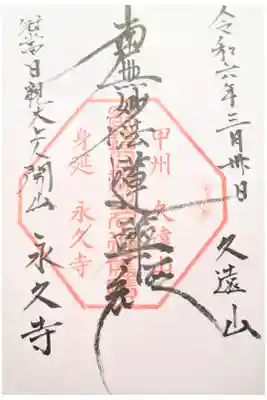 令和六年三月卅日
久遠山
南無妙法蓮華経
日朝大上人開山
永久寺
甲州 久遠山
身延 永久寺